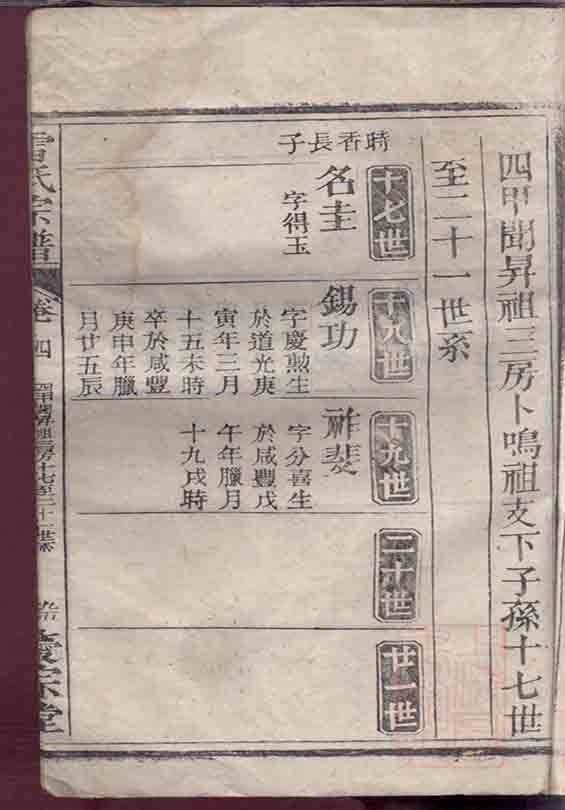 四甲聞昇祖三房卜鳴祖支下子孫十七世
至二十一世系
十七世
時香長子
名圭
字得玉
十八世
錫功
字慶勲生
於道光庚
寅年三月
十五未時
卒於咸豐
庚申年臘
月廿五辰
十九世
祚斐
字分喜生
於咸豐戊
午年臘月
十九戌時
二十世
廿一世
氏宗譜
卷四
四甲聞昇祖三房十七至二十一世系
宗堂